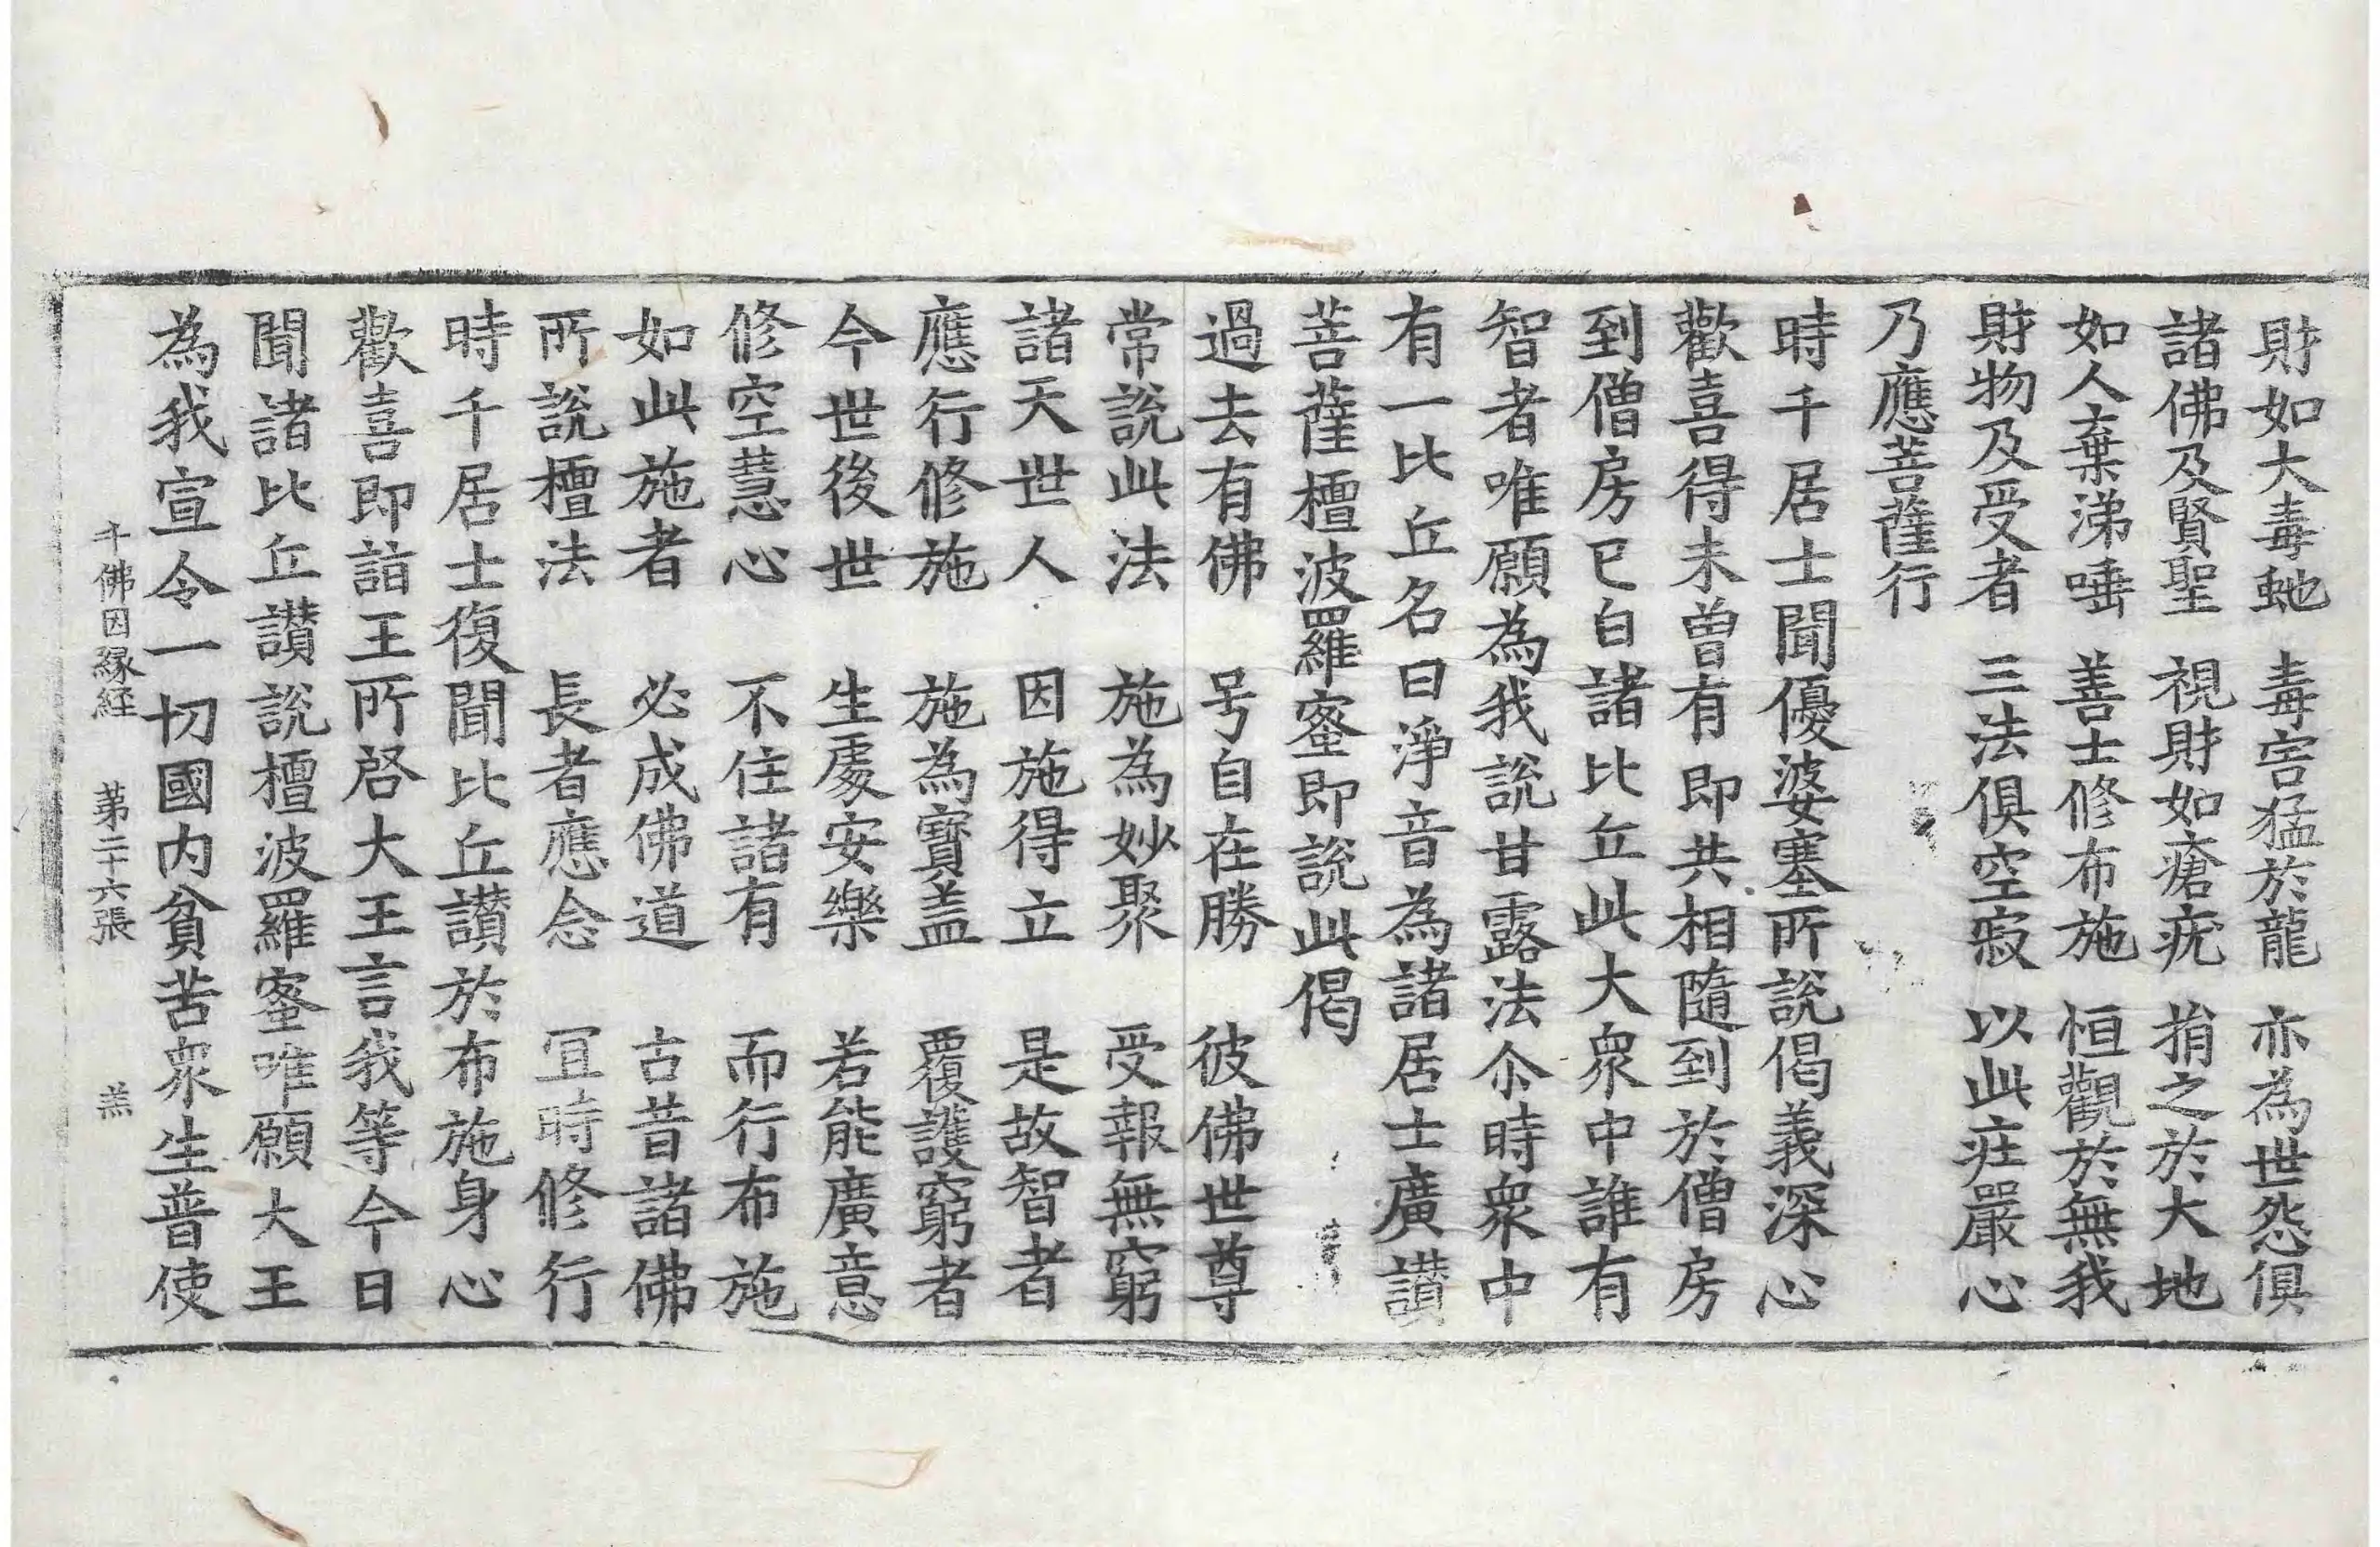 財如大毒虵　毒害猛於龍　亦為世怨俱
諸佛及賢聖　視財如瘡疣　捐之於大地
如人棄涕唾　善士修布施　恒觀於無我
財物及受者　三法俱空寂　以此庄嚴心
乃應菩薩行
時千居士聞優婆塞所說偈義深心
歡喜得未曾有即共相隨到於僧房
到僧房已白諸比丘此大衆中誰有
智者唯願為我說甘露法尒時衆中
有一比丘名曰淨音為諸居士廣讃
菩薩檀波羅蜜即說此偈
過去有佛　号自在勝　彼佛世尊
常說此法　施為妙聚　受報無窮
諸天世人　因施得立　是故智者
應行修施　施為寶盖　覆護窮者
今世後世　生處安樂　若能廣意
修空慧心　不住諸有　而行布施
如此施者　必成佛道　古昔諸佛
所說檀法　長者應念　冝時修行
時千居士復聞比丘讃於布施身心
歡喜即詣王所啓大王言我等今日
聞諸比丘讃說檀波羅蜜唯願大王
為我宣令一切國内貧苦衆生普使
千佛因緣経　苐二十六張　羔